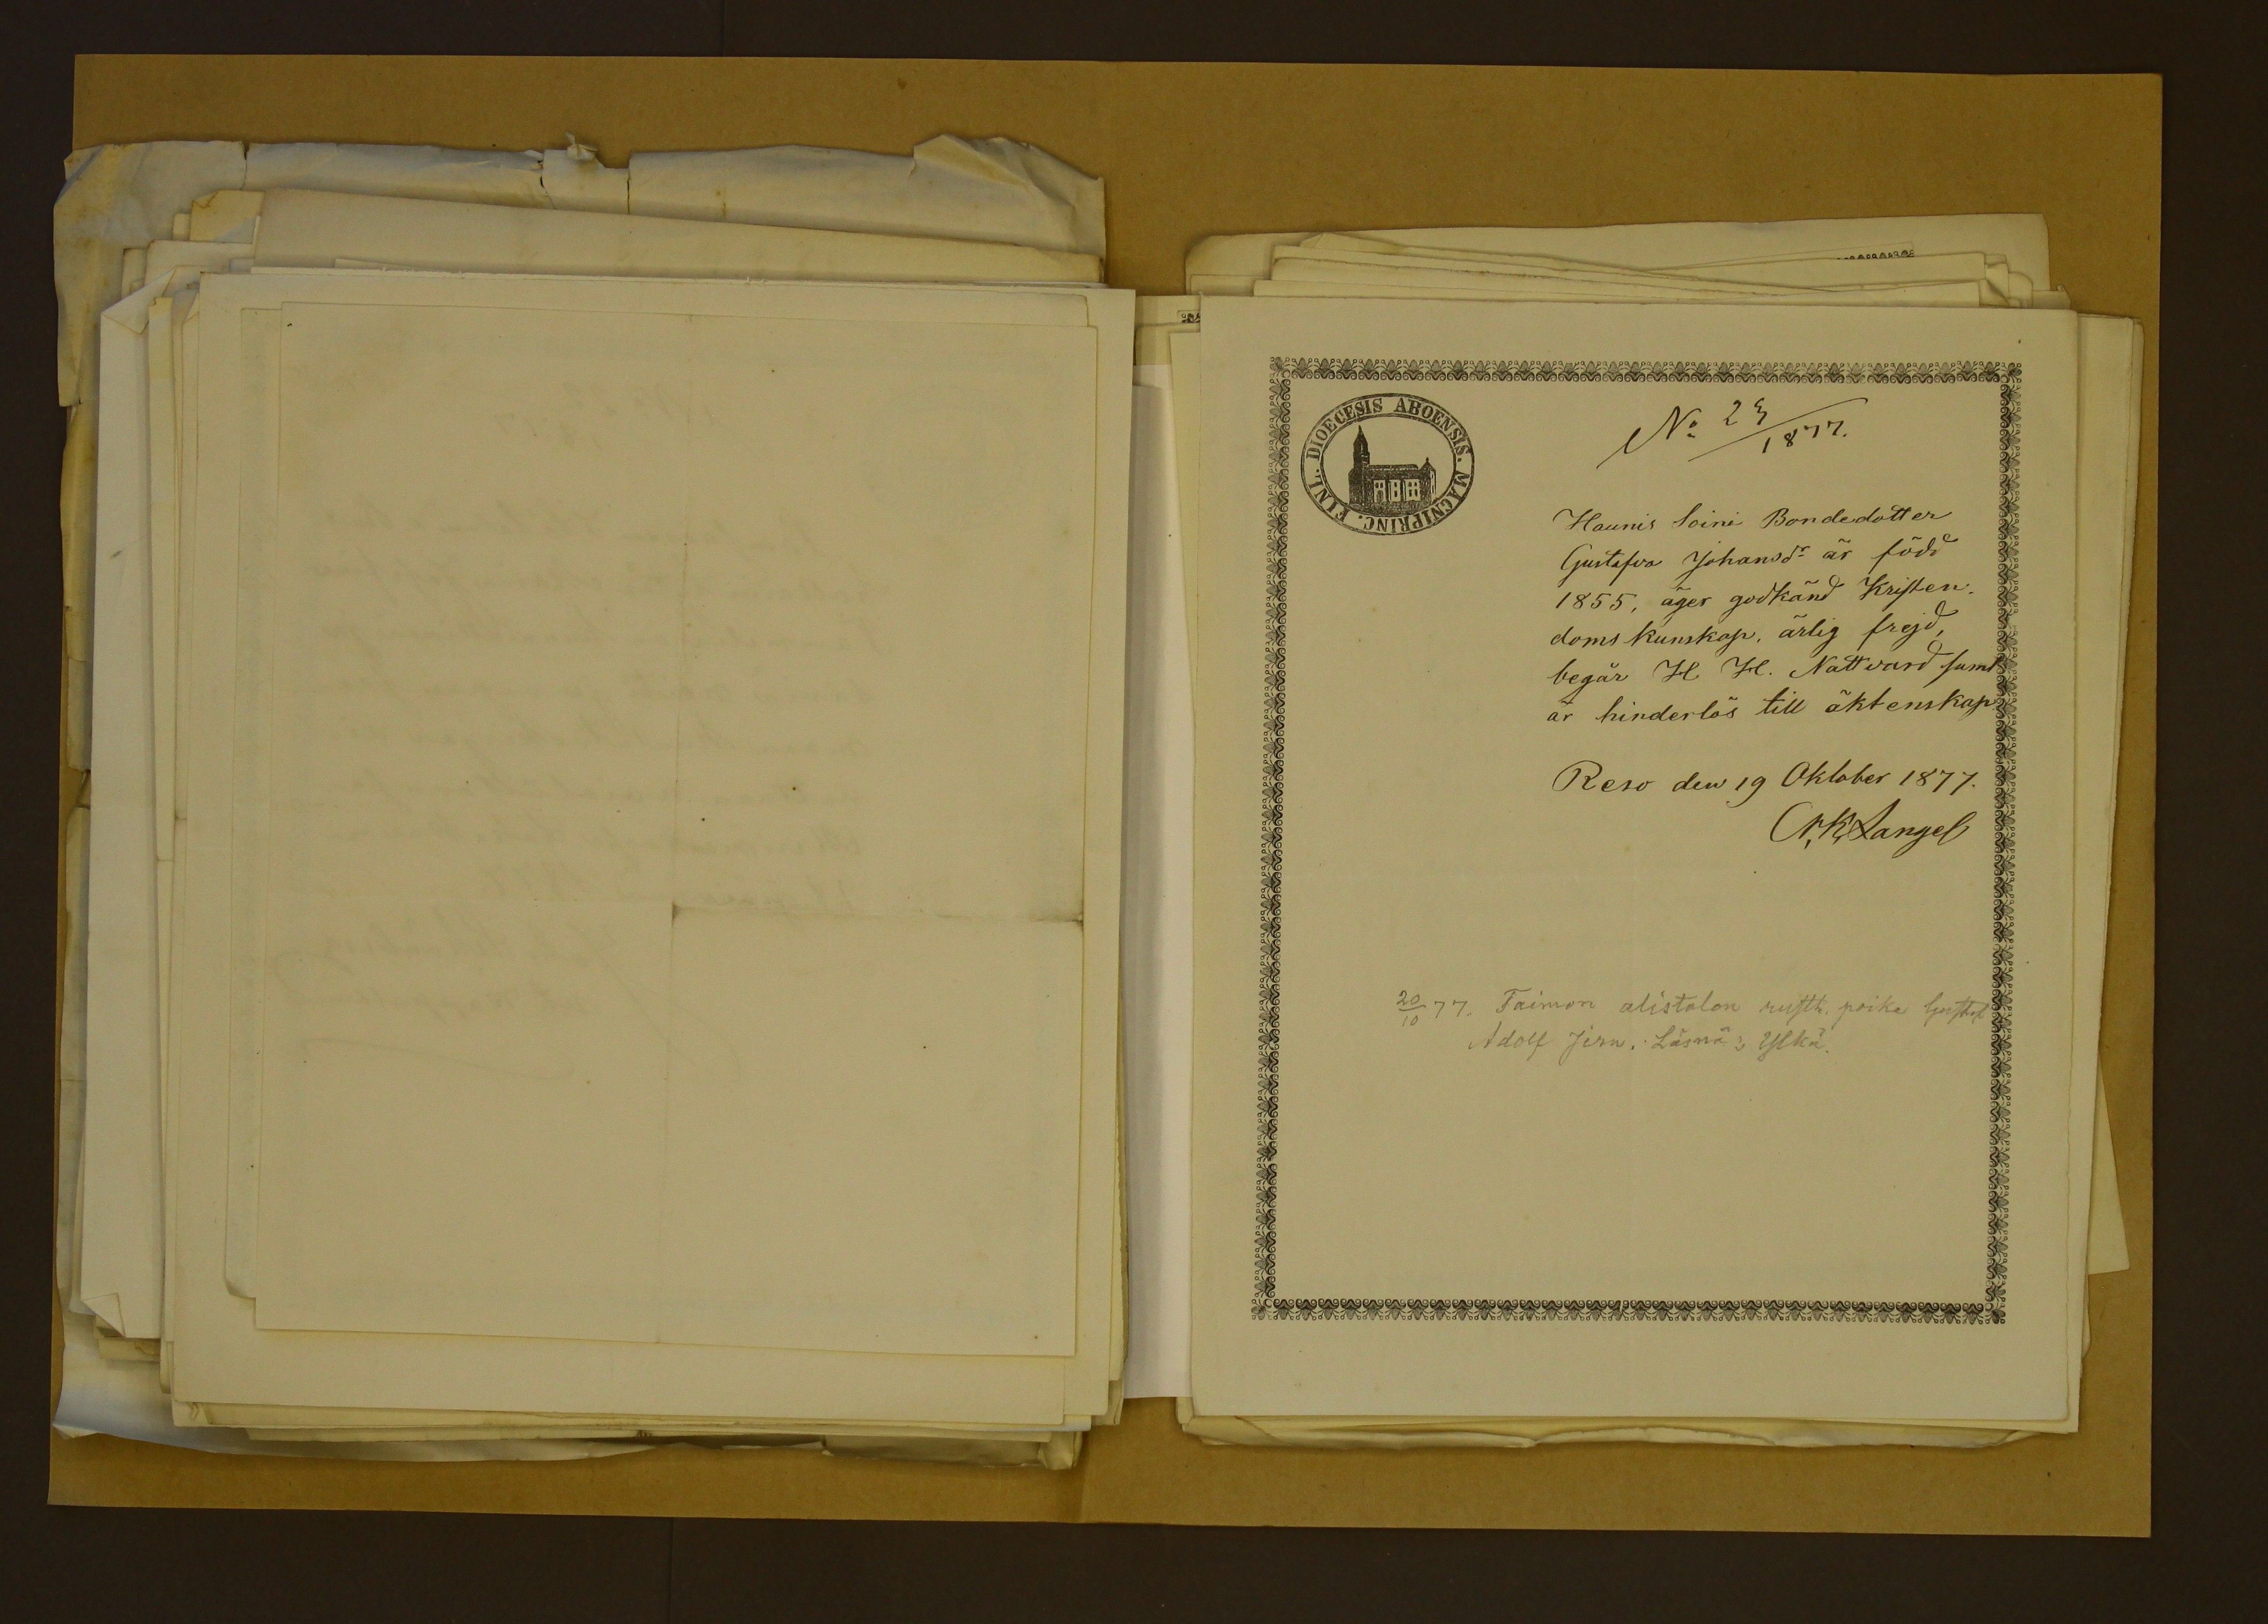 FINL. DIOECESIS ABOENSIS. MAGNIPRINC.
No 23/1877.
Haunis Soini Bondedotter
Gustafva Johansdr är född
1855, äger godkänd Kristen-
doms kunskap, ärlig frejd,
begår H H. Nattvard samt
är hinderlös till äktenskap.
Reso den 19 Oktober 1877.
Langel
20/10 77. Taimon alistalon rusth. poika Gustaf
Adolf Jern.